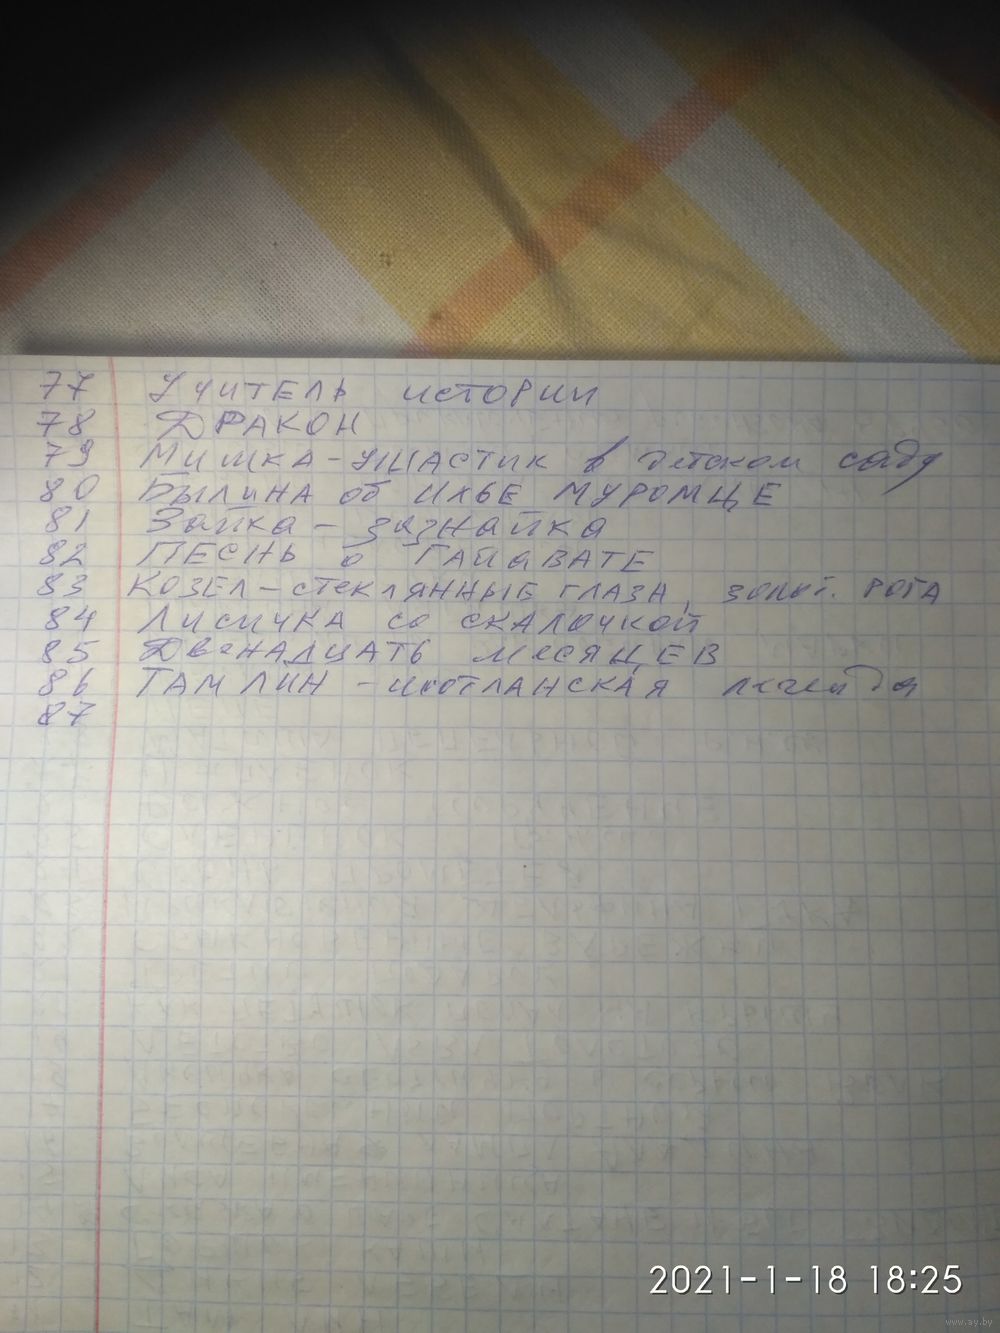 77 Учитель истории
78 Дракон
79 Мишка-ушастик в детском саду
80 Былина об Илье Муромце
81 Зайка-зазнайка
82 Песнь о Гайавате
83 Козел-стеклянные глаза, золот. рога
84 Лисичка со скалочкой
85 Двенадцать месяцев
86 Там Лин - шотланская легенда
87
2021-1-18 18:25
www.ay.by